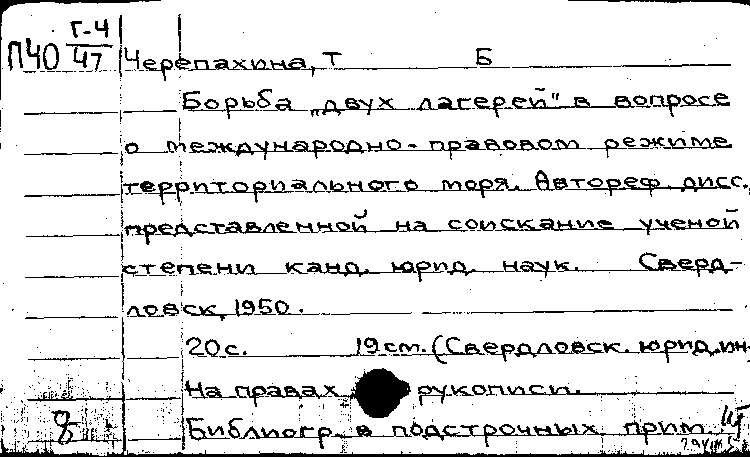 Г-4
П40 47 Черепахина, Т Б
Борьба „двух лагерей" в вопросе
о международно-правовом режиме
территориального моря. Автореф. дисс.,
представленной на соискание ученой
степени канд. юрид. наук. Сверд-
ловск, 1950.
20 с. 19 ст. (Свердловск. юрид. ин
На правах рукописи.
8 Библиогр. в подстрочных прим.